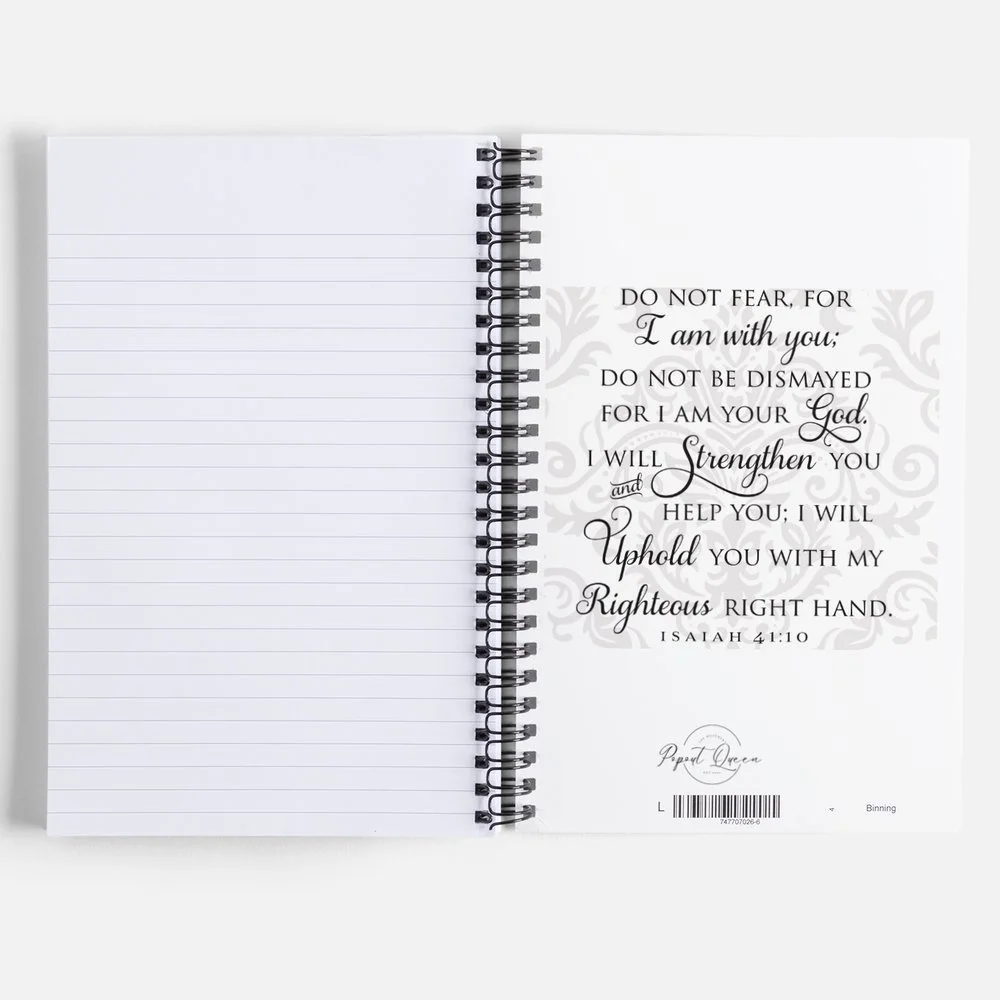 DO NOT FEAR, FOR
I am with you;
DO NOT BE DISMAYED
FOR I AM YOUR God.
I WILL Strengthen YOU
and
HELP YOU; I WILL
Uphold YOU WITH MY
Righteous RIGHT HAND.
ISAIAH 41:10
Popout Queen
L
747707026-6
4
Binning